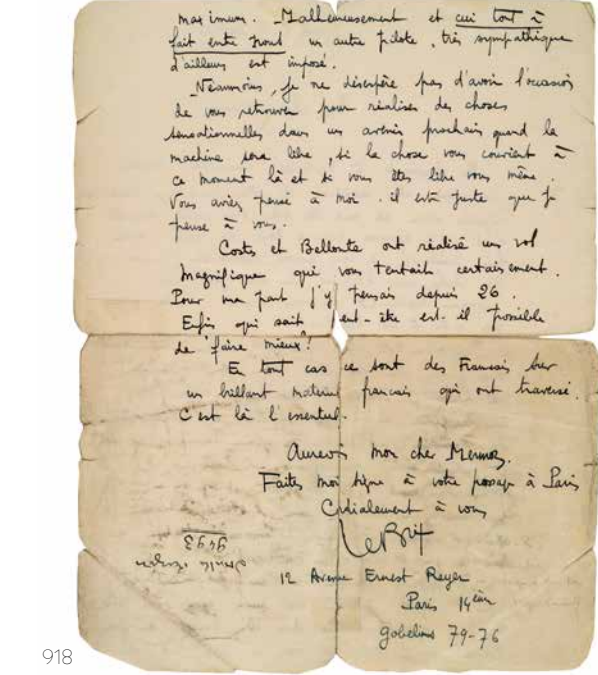 maximum. Malheureusement et ceci tout à
fait entre nous un autre pilote, très sympathique
d'ailleurs est imposé.
Néanmoins, je ne désespère pas d'avoir l'occasion
de vous retrouver pour réaliser des choses
sensationnelles dans un avenir prochain quand la
machine sera libre, si la chose vous convient à
ce moment là et si vous êtes libre vous même.
Vous aviez pensé à moi. il est juste que je
pense à vous.
Costes et Bellonte ont réalisé un vol
magnifique qui vous tentait certainement.
Pour ma part j'y pensais depuis 26.
Enfin qui sait ent-être est-il possible
de faire mieux!
En tout cas ce sont des Français sur
un brillant matériel français qui ont traversé.
C'est là l'essentiel.
Aurevoir mon cher Mermoz.
Faites moi signe à votre passage à Paris
Cordialement à vous
LeBrix
12 Avenue Ernest Reyer
Paris 14ème
gobelins 79-76
9493
918